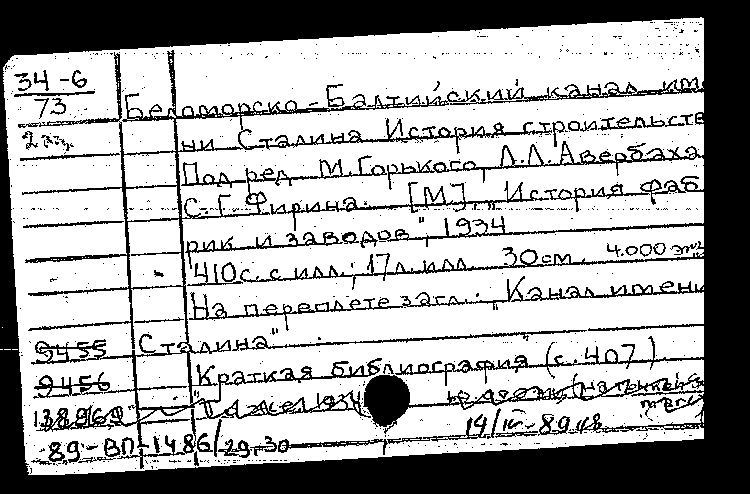 34-6
73
2 экз.
Беломорско-Балтийский канал име
ни Сталина История строительств
Под ред. М. Горького, Л.Л. Авербаха
С.Г. Фирина. [М], "История фаб
рик и заводов", 1934
410с. с илл.; 17л. илл. 30см. 4.000 экз
На переплете загл.: "Канал имени
Сталина"
9455
9456
Краткая библиография (с. 407)
138969
14/IV-89
89-ВП-1486/29, 30